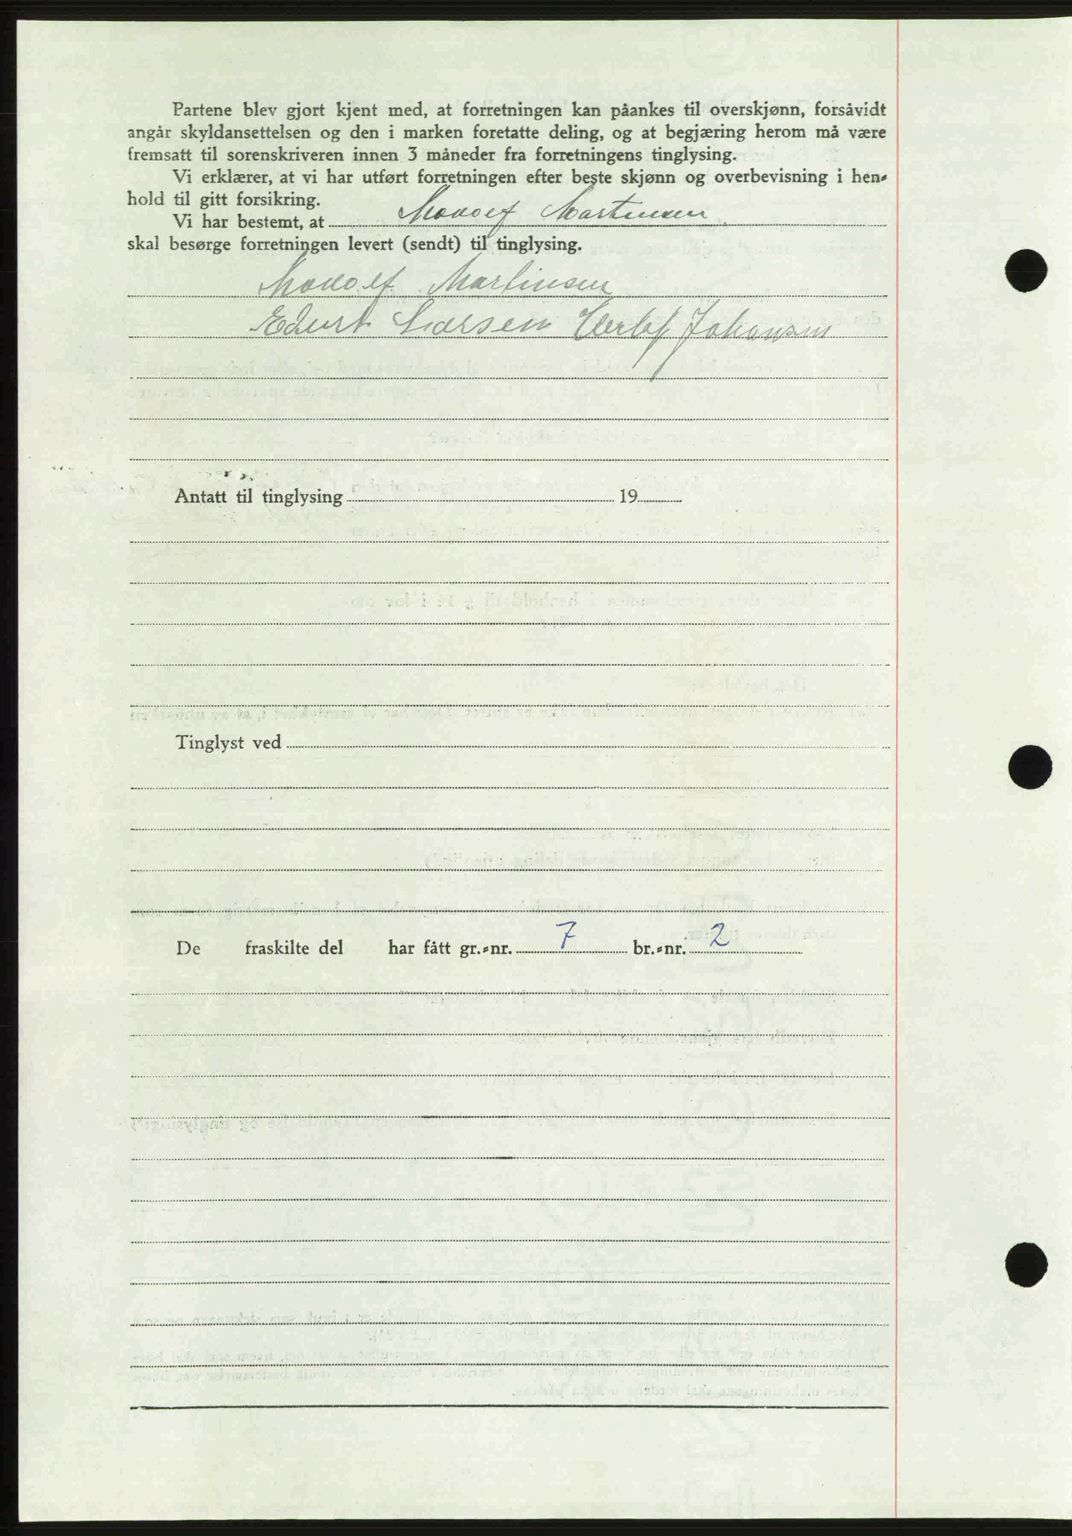 Partene blev gjort kjent med, at forretningen kan påankes til overskjønn, forsåvidt
angår skyldansettelsen og den i marken foretatte deling, og at begjæring herom må være
fremsatt til sorenskriveren innen 3 måneder fra forretningens tinglysing.
Vi erklærer, at vi har utført forretningen efter beste skjønn og overbevisning i hen-
hold til gitt forsikring.
Vi har bestemt, at Martinsen
skal besørge forretningen levert (sendt) til tinglysing.
Martinsen
Edvart Larsen Johansen
Antatt til tinglysing 19
Tinglyst ved
De fraskilte del har fått gr.-nr. 7 br.-nr. 2